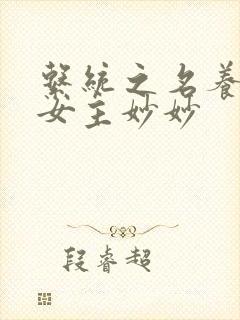 繫統之名養
女主妙妙
段睿超